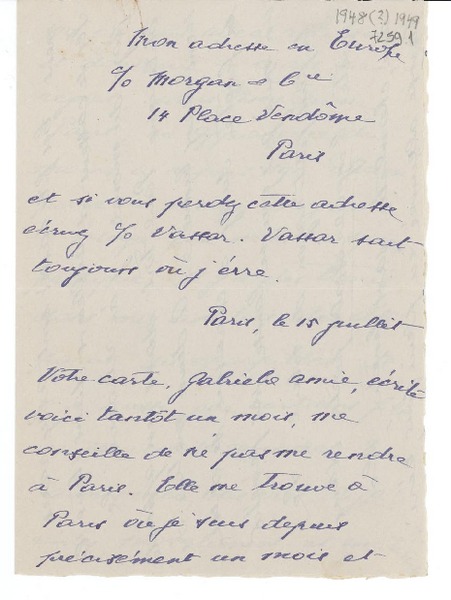 1948(?) 1949
72591
Mon adresse en Europe
c/o Morgan & Cie
14 Place Vendôme
Paris
et si vous perdez cette adresse
écrivez c/o Vassar. Vassar sait
toujours où j'erre.
Paris, le 15 juillet
Votre carte, Gabriela amie, écrite
voici tantôt un mois, me
conseille de ne pas me rendre
à Paris. Elle me trouve à
Paris où je suis depuis
précisément un mois et